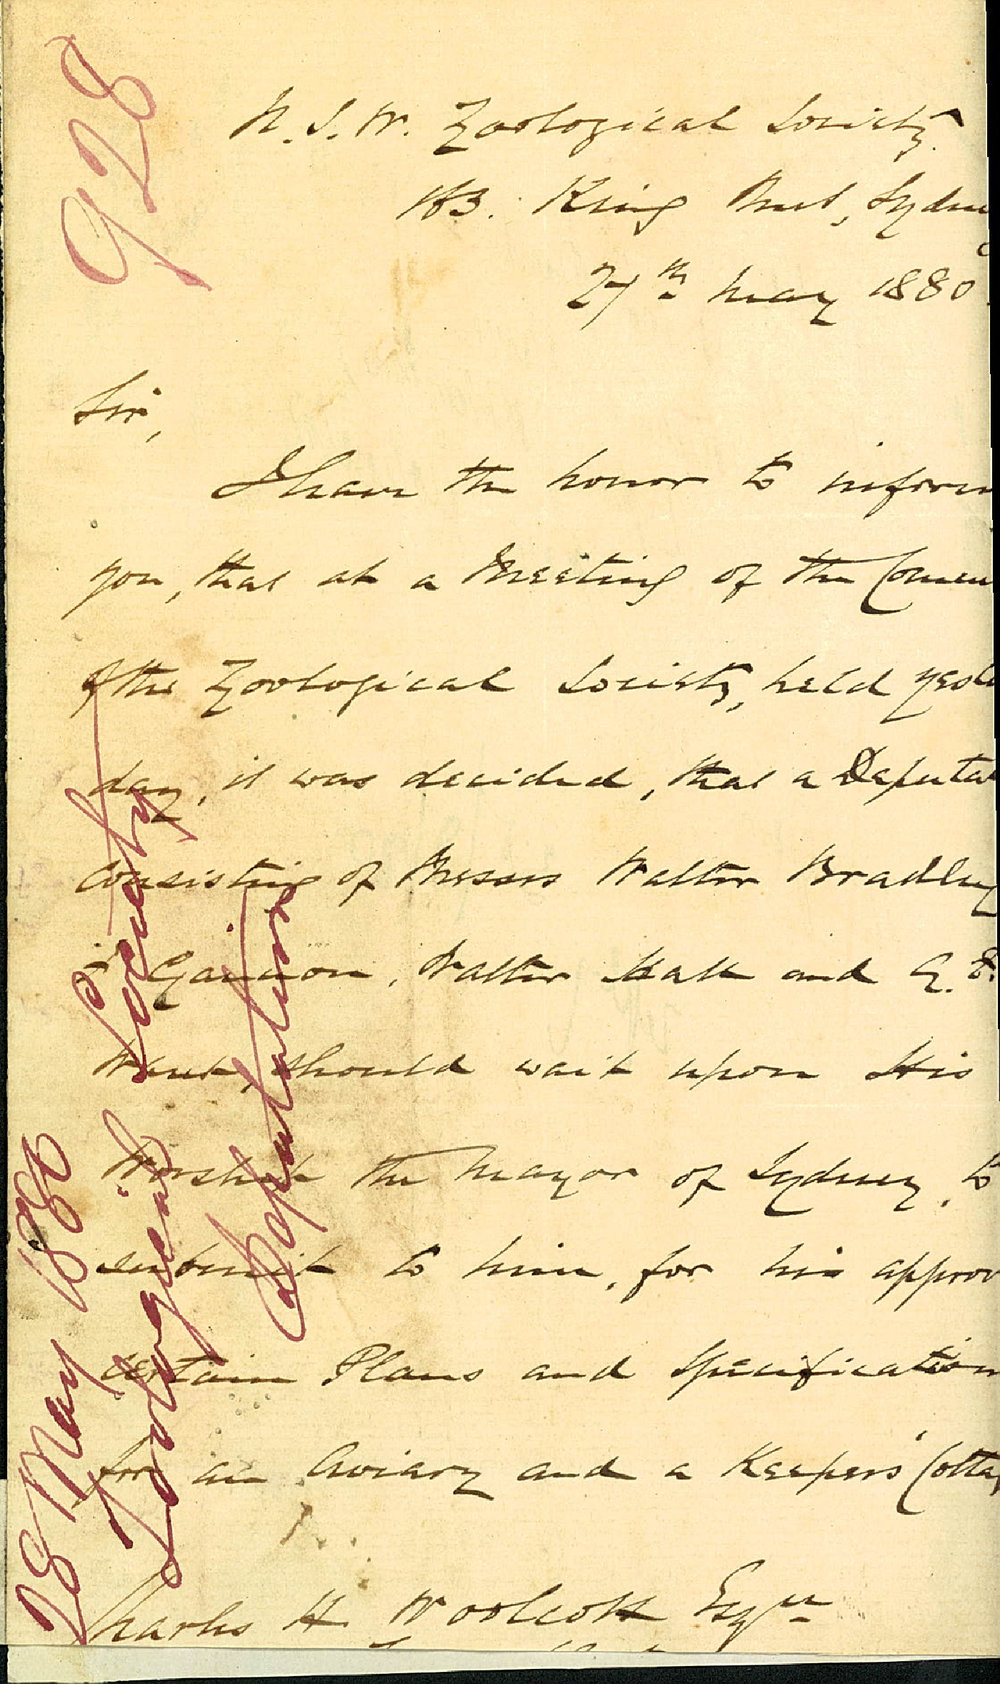 928
N. S. W. Zoological Society.
163. King Street, Sydney
27th May 1880.
Sir,
I have the honor to inform
you, that at a Meeting of the Coun
of the Zoological Society, held yest
day, it was decided, that a Deputat
consisting of Messrs Walter Bradley
Gannon, Walter Hall and G. F.
Want, should wait upon His
Worship the Mayor of Sydney, to
submit to him, for his approv
certain Plans and Specification
for an Aviary and a Keepers' Cottag
Charles H. Woolcott Esqre
28 May 1880
Zoological Society
Deputation